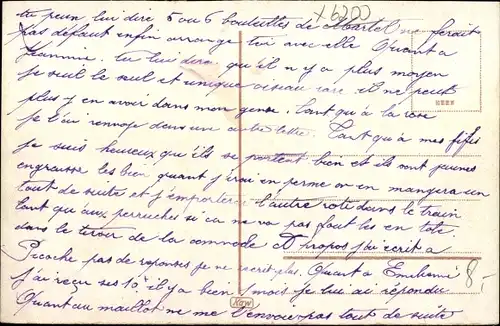 X6200
tu peux lui dire 5 ou 6 boulettes de ne ferait
pas défaut enfin arrange toi avec elle Quant à
Jeannine. tu lui diras qu'il n y a plus moyen
je suis le seul et unique oiseau rare il ne peut
plus y en avoir dans mon genre. Tant qu'à la rose
je t'ai renvoyé dans une autre lettre. Tant qu'à mes fifis
je suis heureux que ils se portent bien et ils sont jaunes
engraisse les bien quand j'irai en perme on en mangera un
tout de suite et j'emporterai l'autre roti dans le train
tant qu'aux perruches si ca ne va pas fout les en tole
dans le tiroir de la commode A propos j'ai écrit à
Picoche pas de reponses je ne ecrit plus. Quant à
j'ai reçu ses 10f il y a bien 1 mois je lui ai répondu
Quant au maillot ne me l'envoie pas tout de suite
8,-